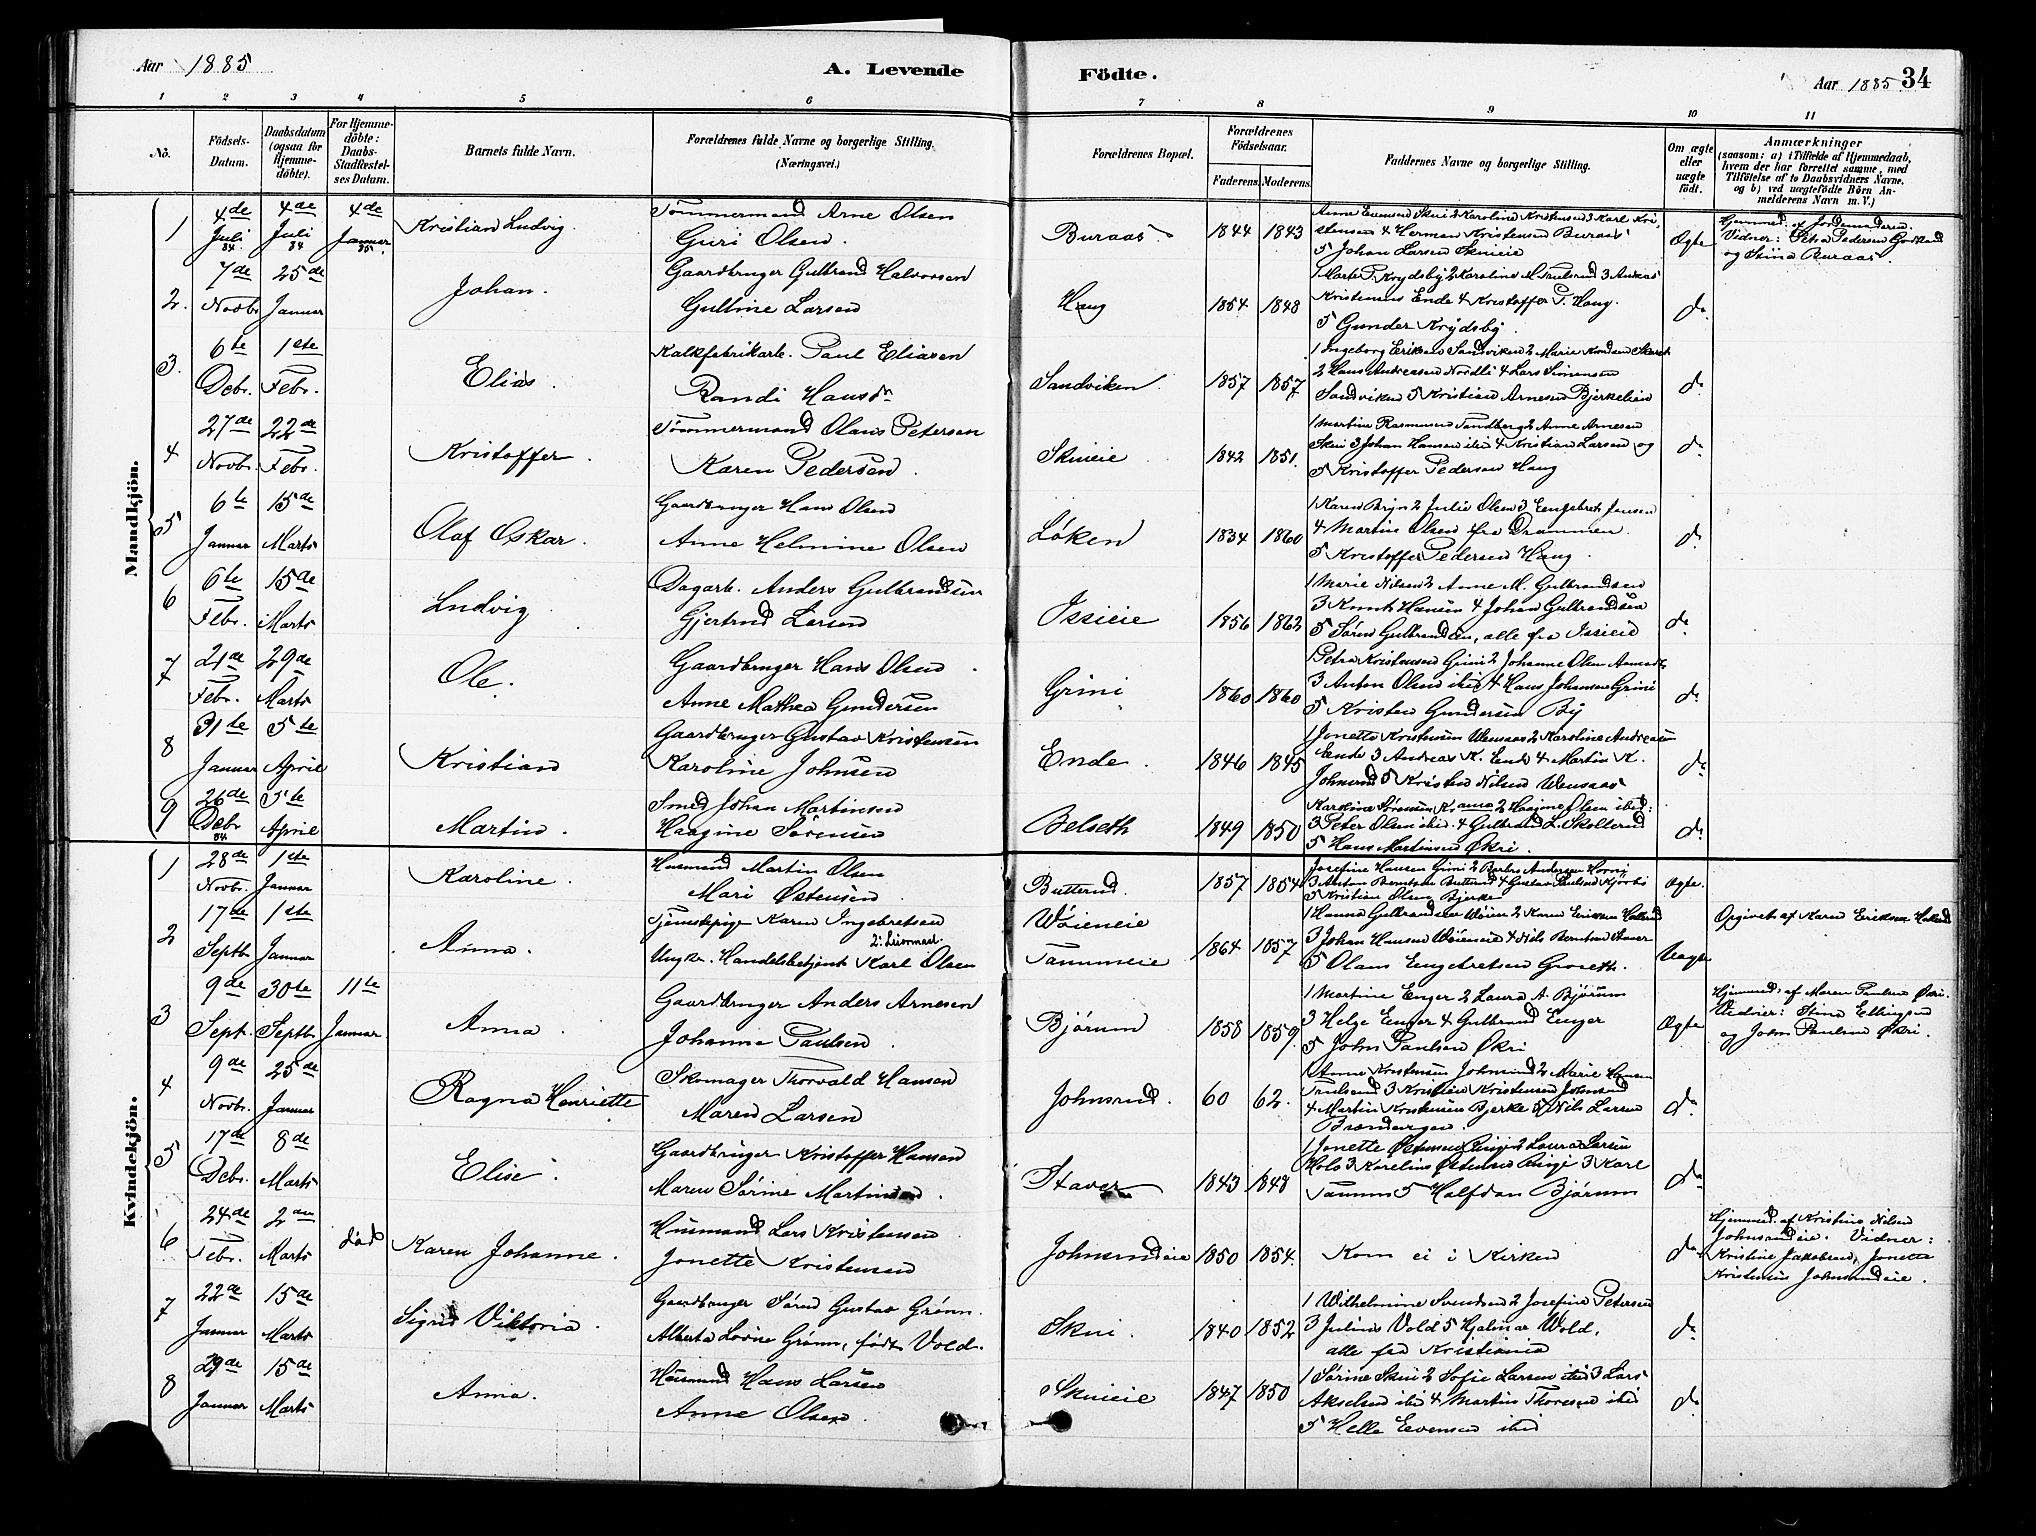 Aar 1885
A. Levende Födte.
Aar 1885 34
1 2 3 4 5 6 7 8 9 10 11
No.
Födsels-Datum.
Daabsdatum (ogsaa for Hjemme-döbte).
For Hjemme-döbte: Daabs-Stadfæstel-ses Datum.
Barnets fulde Navn.
Forældrenes fulde Navne og borgerlige Stilling. (Næringsvei.)
Forældrenes Bopæl.
Forældrenes Födselsaar.
Faderens. Moderens.
Faddernes Navne og borgerlige Stilling.
Om ægte eller uægte födt.
Anmærkninger
(saasom: a) i Tilfælde af Hjemmedaab,
hvem der har forrettet samme, med
Tilföielse af to Daabsvidners Navne.
og b) ved uægtefödte Börn An-
melderens Navn m. V.)
Mandkjön.
1 4de Juli 84 4de Juli 84 4de Januar 85. Kristian Ludvig.
Tömmermand Arne Olsen
Guri Olsen.
Buraas. 1844 1843
Anne Evensen Skui 2 Karoline Kristensen 3 Karl Kri-
stensen 4 Herman Kristensen Buraas
5 Johan Larsen Skuieie
Ægte
Hjemmed. af Jordemoderen.
Vidner: Petra Pedersen
og Stina Buraas.
2. 7de Novbr. 25de Januar Johan.
Gaardbruger Gulbrand Halvorsen
Gulline Larsen
Haug 1854 1848
Kristensens Ende 4 Kristoffer P. Haug.
5 Gunder Krydsby.
do
3. 6te Debr. 1ste Febr. Elias.
Kalkfabrikarb. Paul Eliasen
Randi Hansdn
Sandviken. 1857 1857
1 Ingeborg Eriksens Sandviken 2 Marie Knudsen
2 Hans Andreasen Nordli 4 Lars Simensen
Sandviken 5 Kristian Arnesen Bjerkelien
do
4 27de Novbr. 22de Febr. Kristoffer.
Tömmermand Olaus Petersen
Karen Pedersen.
Skuieie 1842 1851.
1 Martine Rasmussen Tandberg 2 Anne Arnesen
Skui 3 Johan Hansen ibid 4 Kristian Larsen og
5 Kristoffer Pedersen Haug
do
5 6te Januar 15de Marts Olaf Oskar.
Gaardbruger Hans Olsen
Anne Helmine Olsen
Løken 1834 1860
1 Karen Bryn 2 Julie Olsen 3 Engebret Jensen
4 Martin Olsen fra Drammen.
5 Kristoffer Pedersen Haug.
do
6 6te Febr. 15de Marts Ludvig
Dagarb. Anders Gulbrandsen
Gjertrud Larsen
Issieie 1856 1862
1 Marie Nilsen 2 Anne M. Gulbrandsen
3 Knut Hansen 4 Johan Gulbrandsen
5 Søren Gulbrandsen, alle fra Issieie
do
7 21de Febr. 29de Marts Ole.
Gaardbruger Hans Olsen
Anne Mathea Gundersen
Grini 1860 1860
1 Petra Kristensen Grini 2 Johanne Olsen
3 Anton Olsen ibid 4 Hans Johansen Grini
5 Kristen Gundersen By
do
8 31te Januar 5te April Kristian
Gaardbruger Gustav Kristensen
Karoline Johnsen
Ende. 1846 1845
1 Jonette Kristensen Wensaas 2 Karoline Andreasen
Ende 3 Andreas K. Ende 4 Martin K.
Johnsrud 5 Kristen Nilsen Wensaas
do
9 26de Debr 84 5te April Martin.
Smed Johan Martinsen
Haagine Sørensen
Belseth 1849 1850
Karoline Sørensen 2 Haagine Olsen ibid:
3 Peter Olsen ibid. 4 Gulbrand L. Skollerud
5 Hans Martinsen Økri.
do
Kvindekjön.
1 28de Novbr. 1ste Januar Karoline.
Husmand Martin Olsen
Mari Østensen
Butterud. 1857 1854
Josefine Hansen Grini 2 Andersen
3 Anton Berntsen Butterud 4 Gustav Paulsen Kjørbo
5 Kristian Olsen Bjerke
Ægte.
2 17de Septb. 1ste Januar Anna.
Tjenestepige Karen Ingebretsen
Ungkr. Handelsbetjent Karl Olsen
Wøieneie
Tanumeie 1864 1857
1 Hanna Gulbrandsen Wøien 2 Karen Eriksen
3 Johan Hansen Wøieneie 4 Nils Berntsen Staver
5 Olaus Engebretsen Groseth.
Uægte
Opgivet af Karen Eriksen
3 9de Sept. 30te Septb. 11te Januar Anna.
Gaardbruger Anders Arnesen
Johanne Paulsen.
Bjørum 1858 1859.
1 Martine Enger 2 Laura A. Bjørum
3 Helge Enger 4 Gulbrand Enger
5 John Paulsen Økri
Ægte
Hjemmed. af Maren Paulsen Økri.
Vidner: Stina Ellingsen
og John Paulsen Økri.
4 9de Novbr. 25de Januar Ragna Henriette
Skomager Thorvald Hansen
Maren Larsen
Johnsrud. 60 62.
1 Anne Kristensen Johnsrud 2 Marie Hansen
3 Kristian Kristensen Johnsrud
4 Martin Kristensen Bjerke 5 Nils Larsen
do
5 17de Debr. 8de Marts Elise.
Gaardbruger Kristoffer Hansen
Maren Sørine Martinsen.
Staver 1843 1848
1 Jonette Østensen Ringi 2 Laura Larsen
Holo 3 Karelius Østensen Ringi 3 Karl
Tanum 5 Halfdan Bjørum
do
6 24de Febr. 2den Marts død Karen Johanne.
Husmand Lars Kristensen
Jonette Kristensen
Johnsrudeie 1850 1854.
Kom ei i Kirken
do
Hjemmed. af Kristine Nilsen
Johnsrudeie. Vidner:
Kristine Jakobsen, Jonette
Kristensen Johnsrudeie.
7 22de Januar 15de Marts Sigrid Viktoria.
Gaardbruger Søren Gustav Grønn.
Alberta Lovise Grønn, født Vold.
Skui. 1840 1852
1 Wilhelmine Svendsen 2 Josefine Petersen
3 Julius Vold 5 Hjalmar Wold,
alle fra Kristiania
do
8 29de Januar 15de Marts Anna.
Husmand Hans Larsen
Anne Olsen.
Skuieie 1847 1850
1 Sørine Skui 2 Sofie Larsen ibid 3 Lars
Akselsen ibid 4 Martin Thoresen ibid
5 Helle Evensen ibid
do